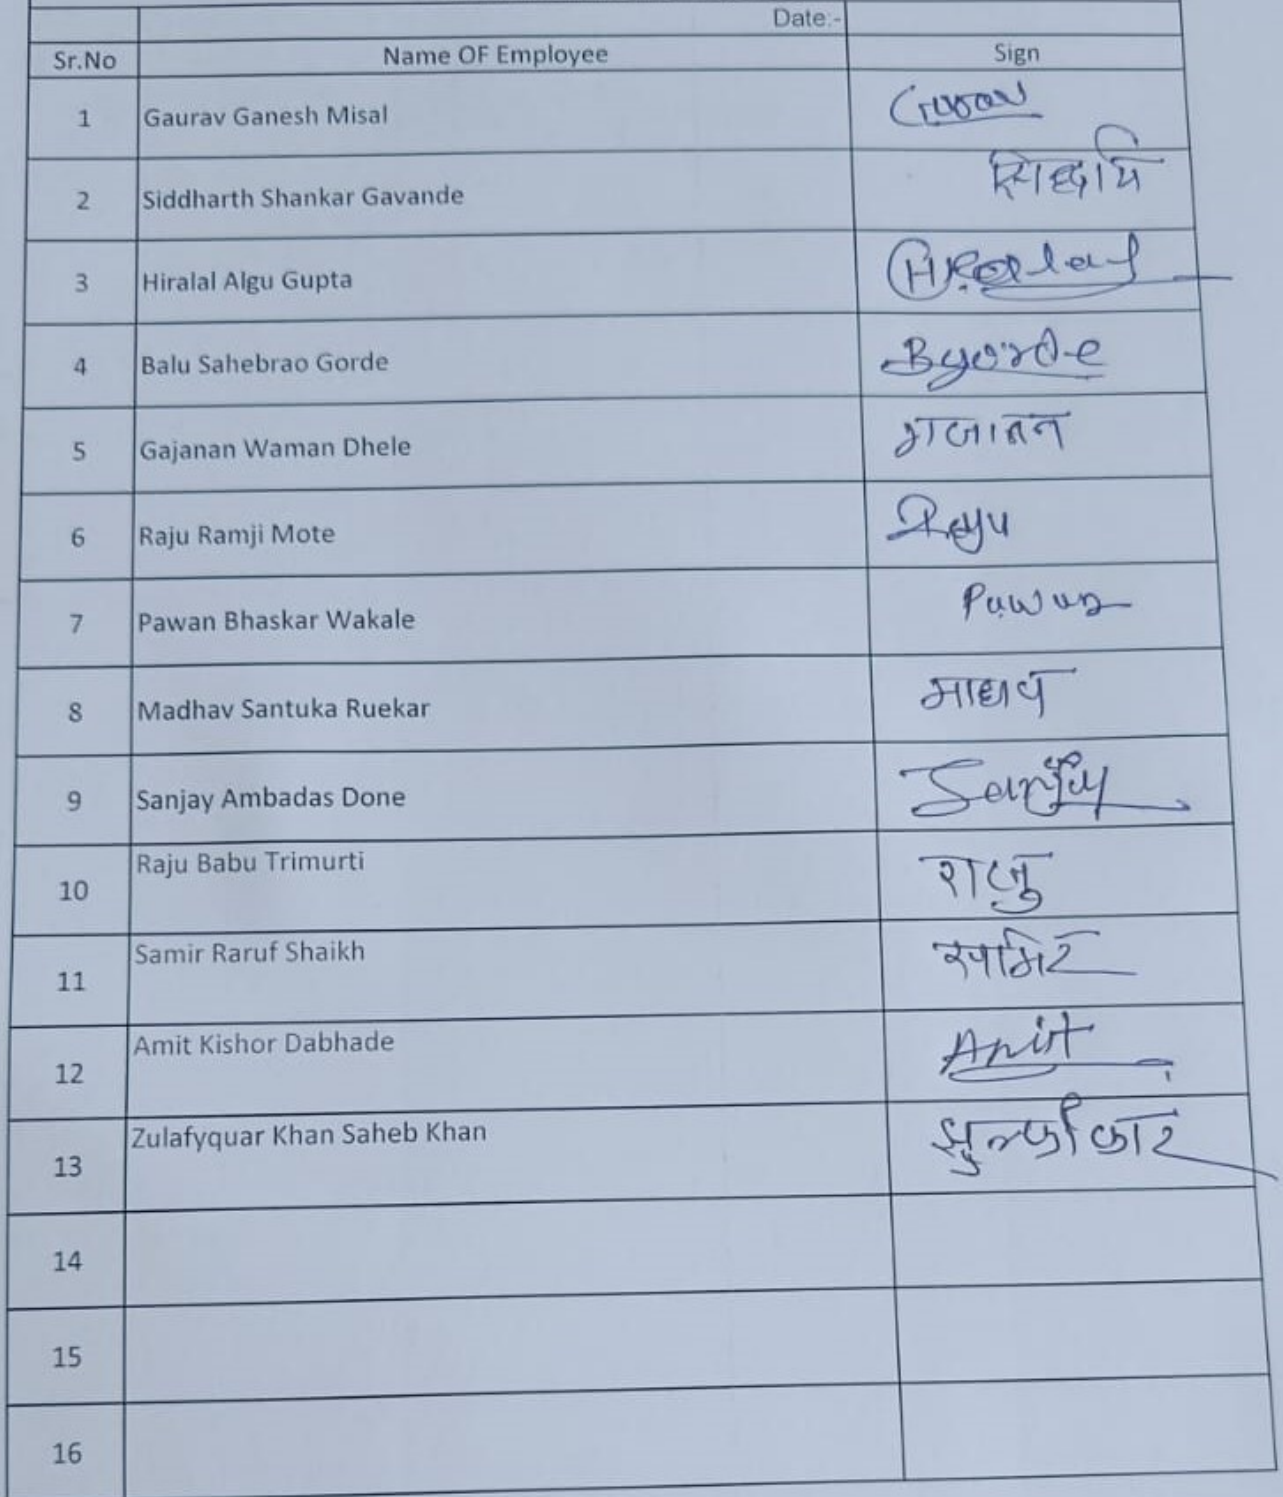 Date:-
Sr.No Name OF Employee Sign
1 Gaurav Ganesh Misal Gurav
2 Siddharth Shankar Gavande सिद्धार्थ
3 Hiralal Algu Gupta Hiralal
4 Balu Sahebrao Gorde Bgorde
5 Gajanan Waman Dhele गजानन
6 Raju Ramji Mote Raju
7 Pawan Bhaskar Wakale Pawan
8 Madhav Santuka Ruekar माधव
9 Sanjay Ambadas Done Sanjay
10 Raju Babu Trimurti राजु
11 Samir Raruf Shaikh समिर
12 Amit Kishor Dabhade Amit
13 Zulafyquar Khan Saheb Khan
14
15
16